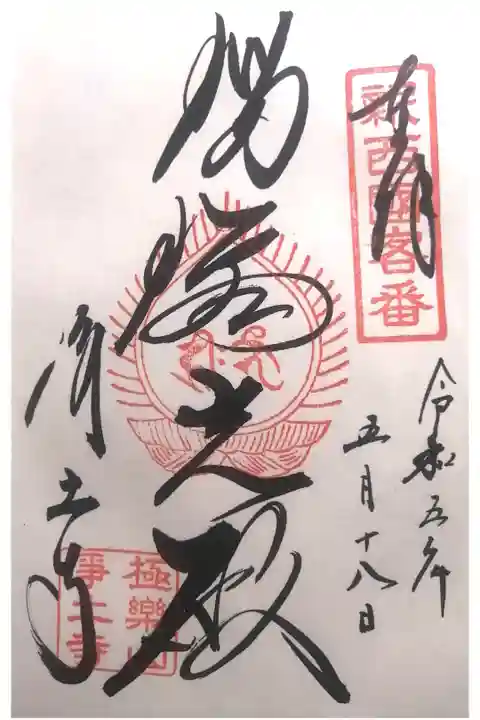 奉拝
新西国客番
令和五年
五月十八日
瑠璃光殿
浄土寺
極樂山
淨土寺